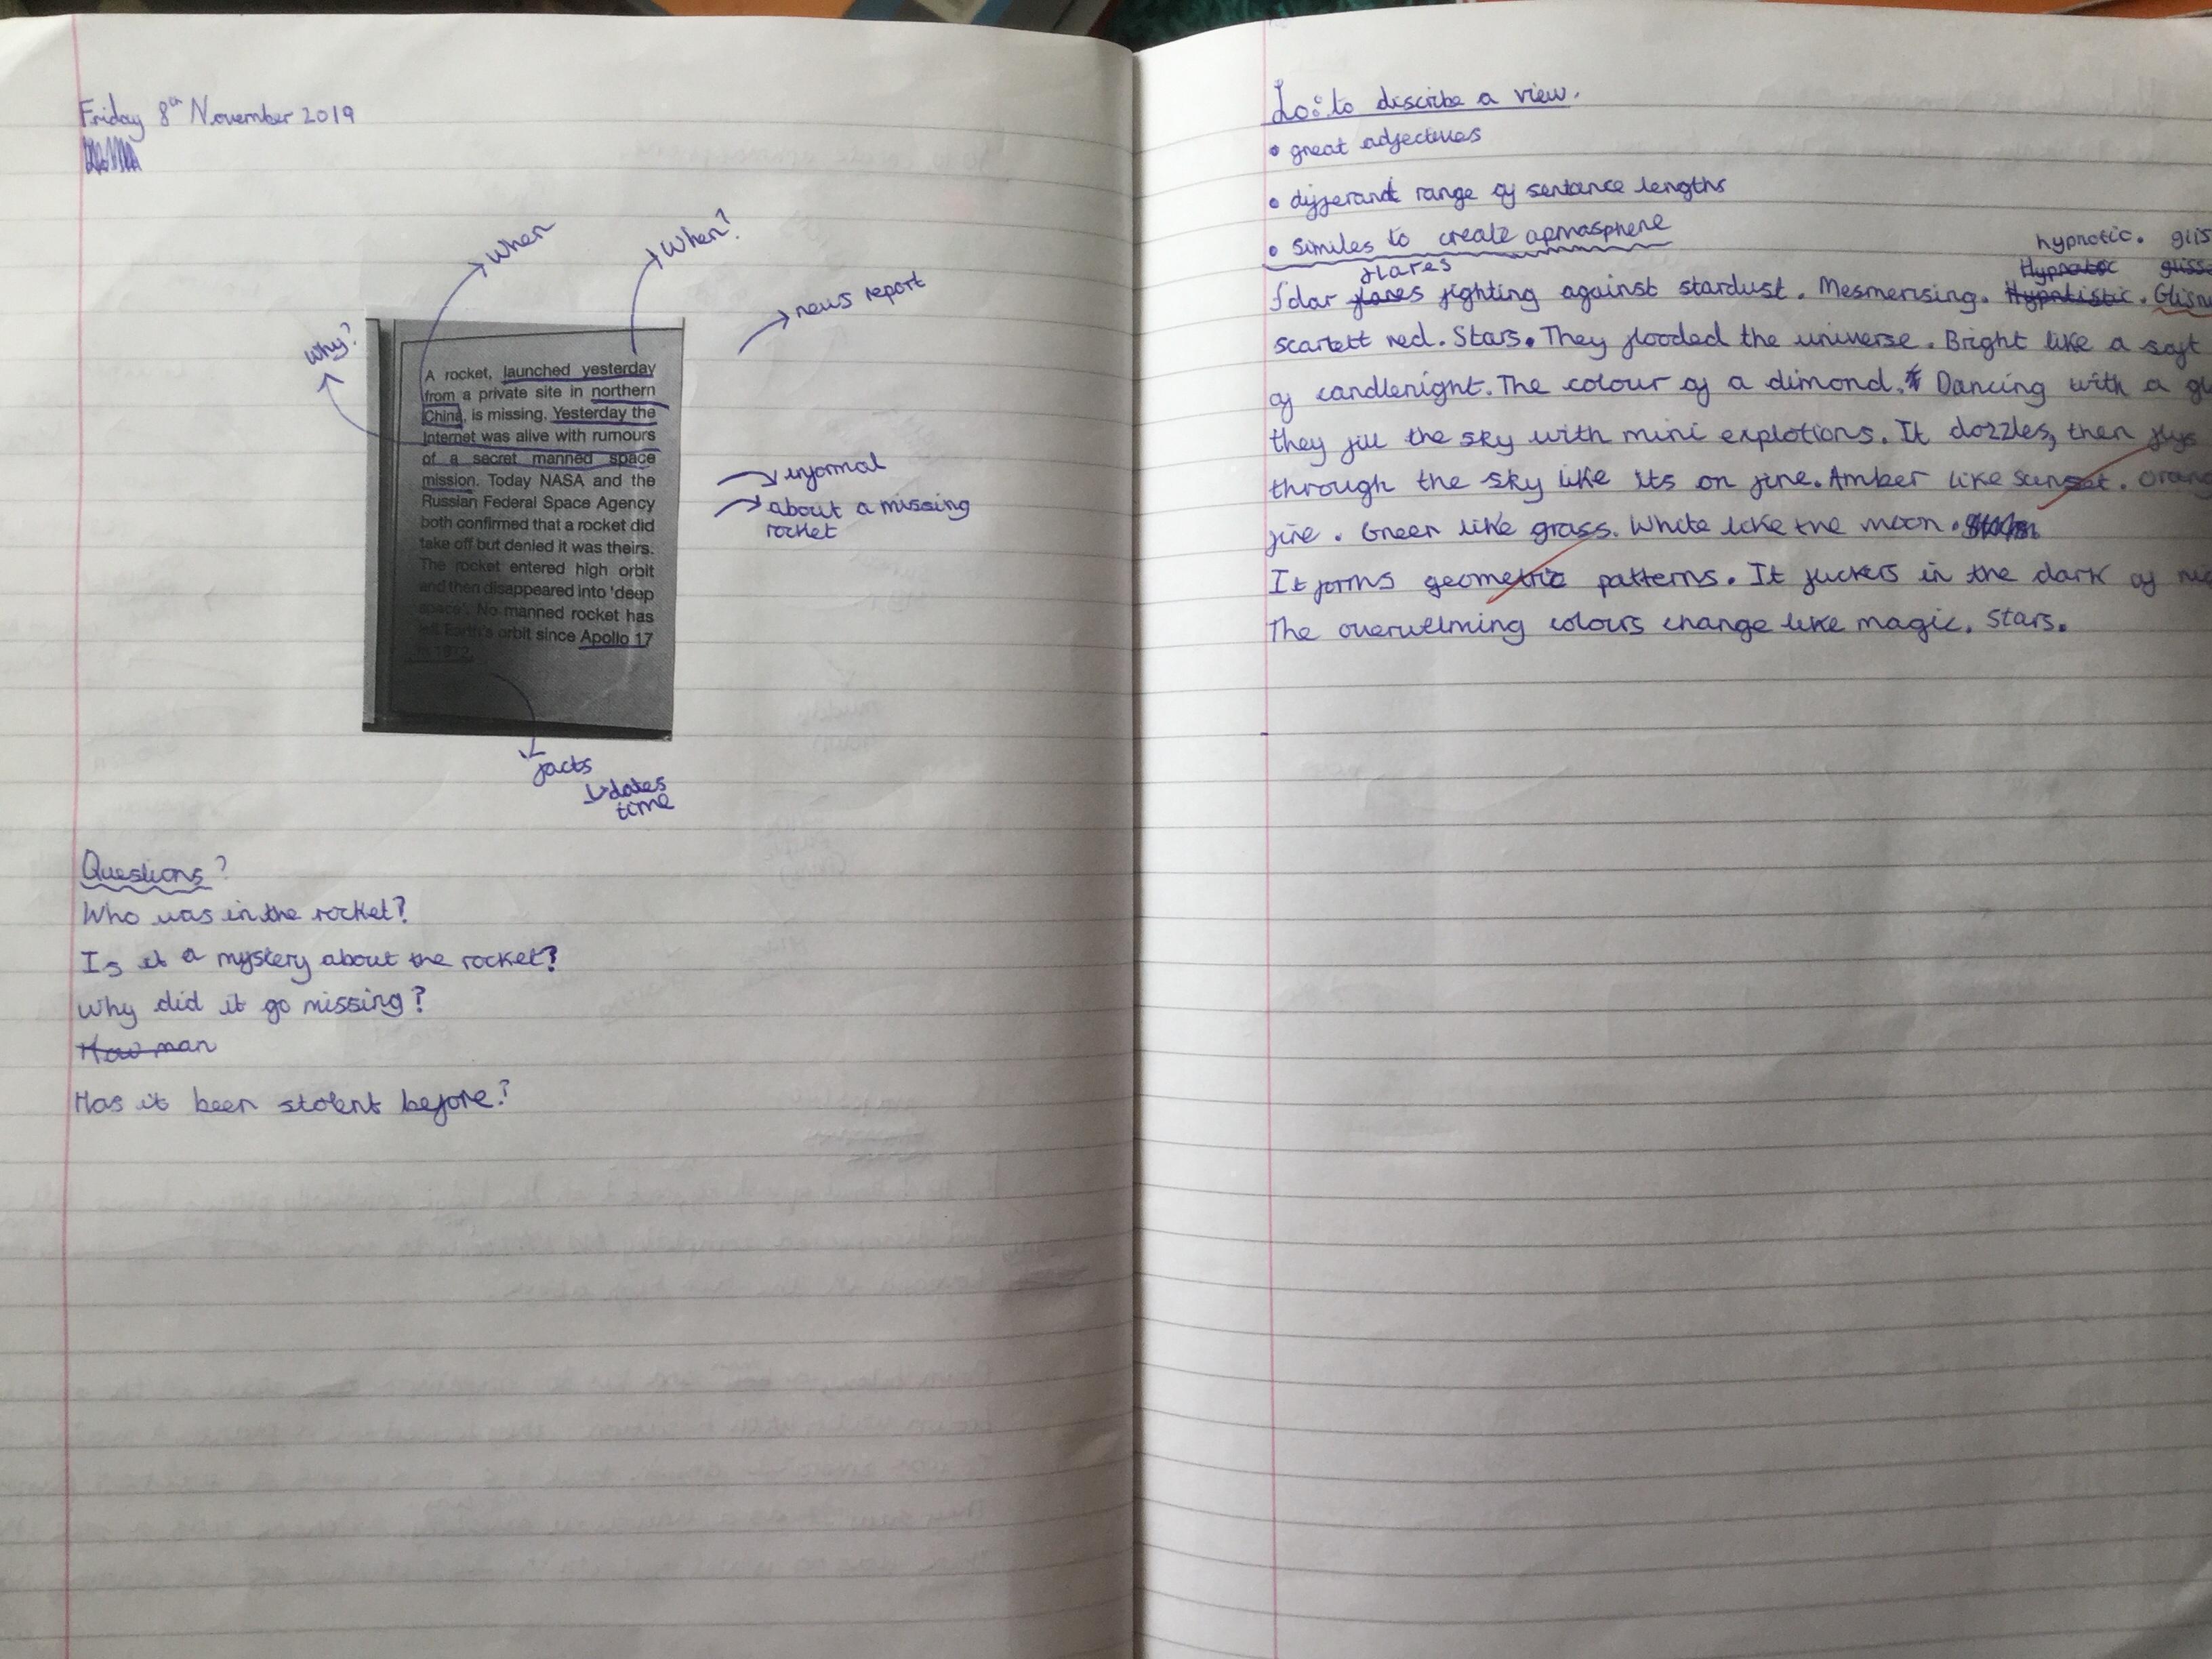 Friday 8th November 2019
When
When?
news report
Why?
A rocket, launched yesterday
from a private site in northern
China, is missing. Yesterday the
Internet was alive with rumours
of a secret manned space
mission. Today NASA and the
Russian Federal Space Agency
both confirmed that a rocket did
take off but denied it was theirs.
The rocket entered high orbit
and then disappeared into 'deep
space'. No manned rocket has
left Earth's orbit since Apollo 17
in 1972.
informal
about a missing
rocket
facts
dates
time
Questions?
Who was in the rocket?
Is it a mystery about the rocket?
Why did it go missing?
How man
Has it been stolent before?
Lo: to discribe a view.
• great adjectives
• differant range of sentance lengths
• similes to create apmasphere
hypnotic. glis
flares
Solar flares fighting against stardust. Mesmerising. Hypntistic. Glisn
scarlett red. Stars. They flooded the universe. Bright like a soft
of candlenight. The colour of a dimond. Dancing with a gl
they fill the sky with mini explotions. It dozzles, then flys
through the sky like its on fire. Amber like sunset. Orang
fire. Green like grass. White like the moon.
It forms geometric patterns. It fuckers in the dark of nig
The overwelming colours change like magic. Stars.